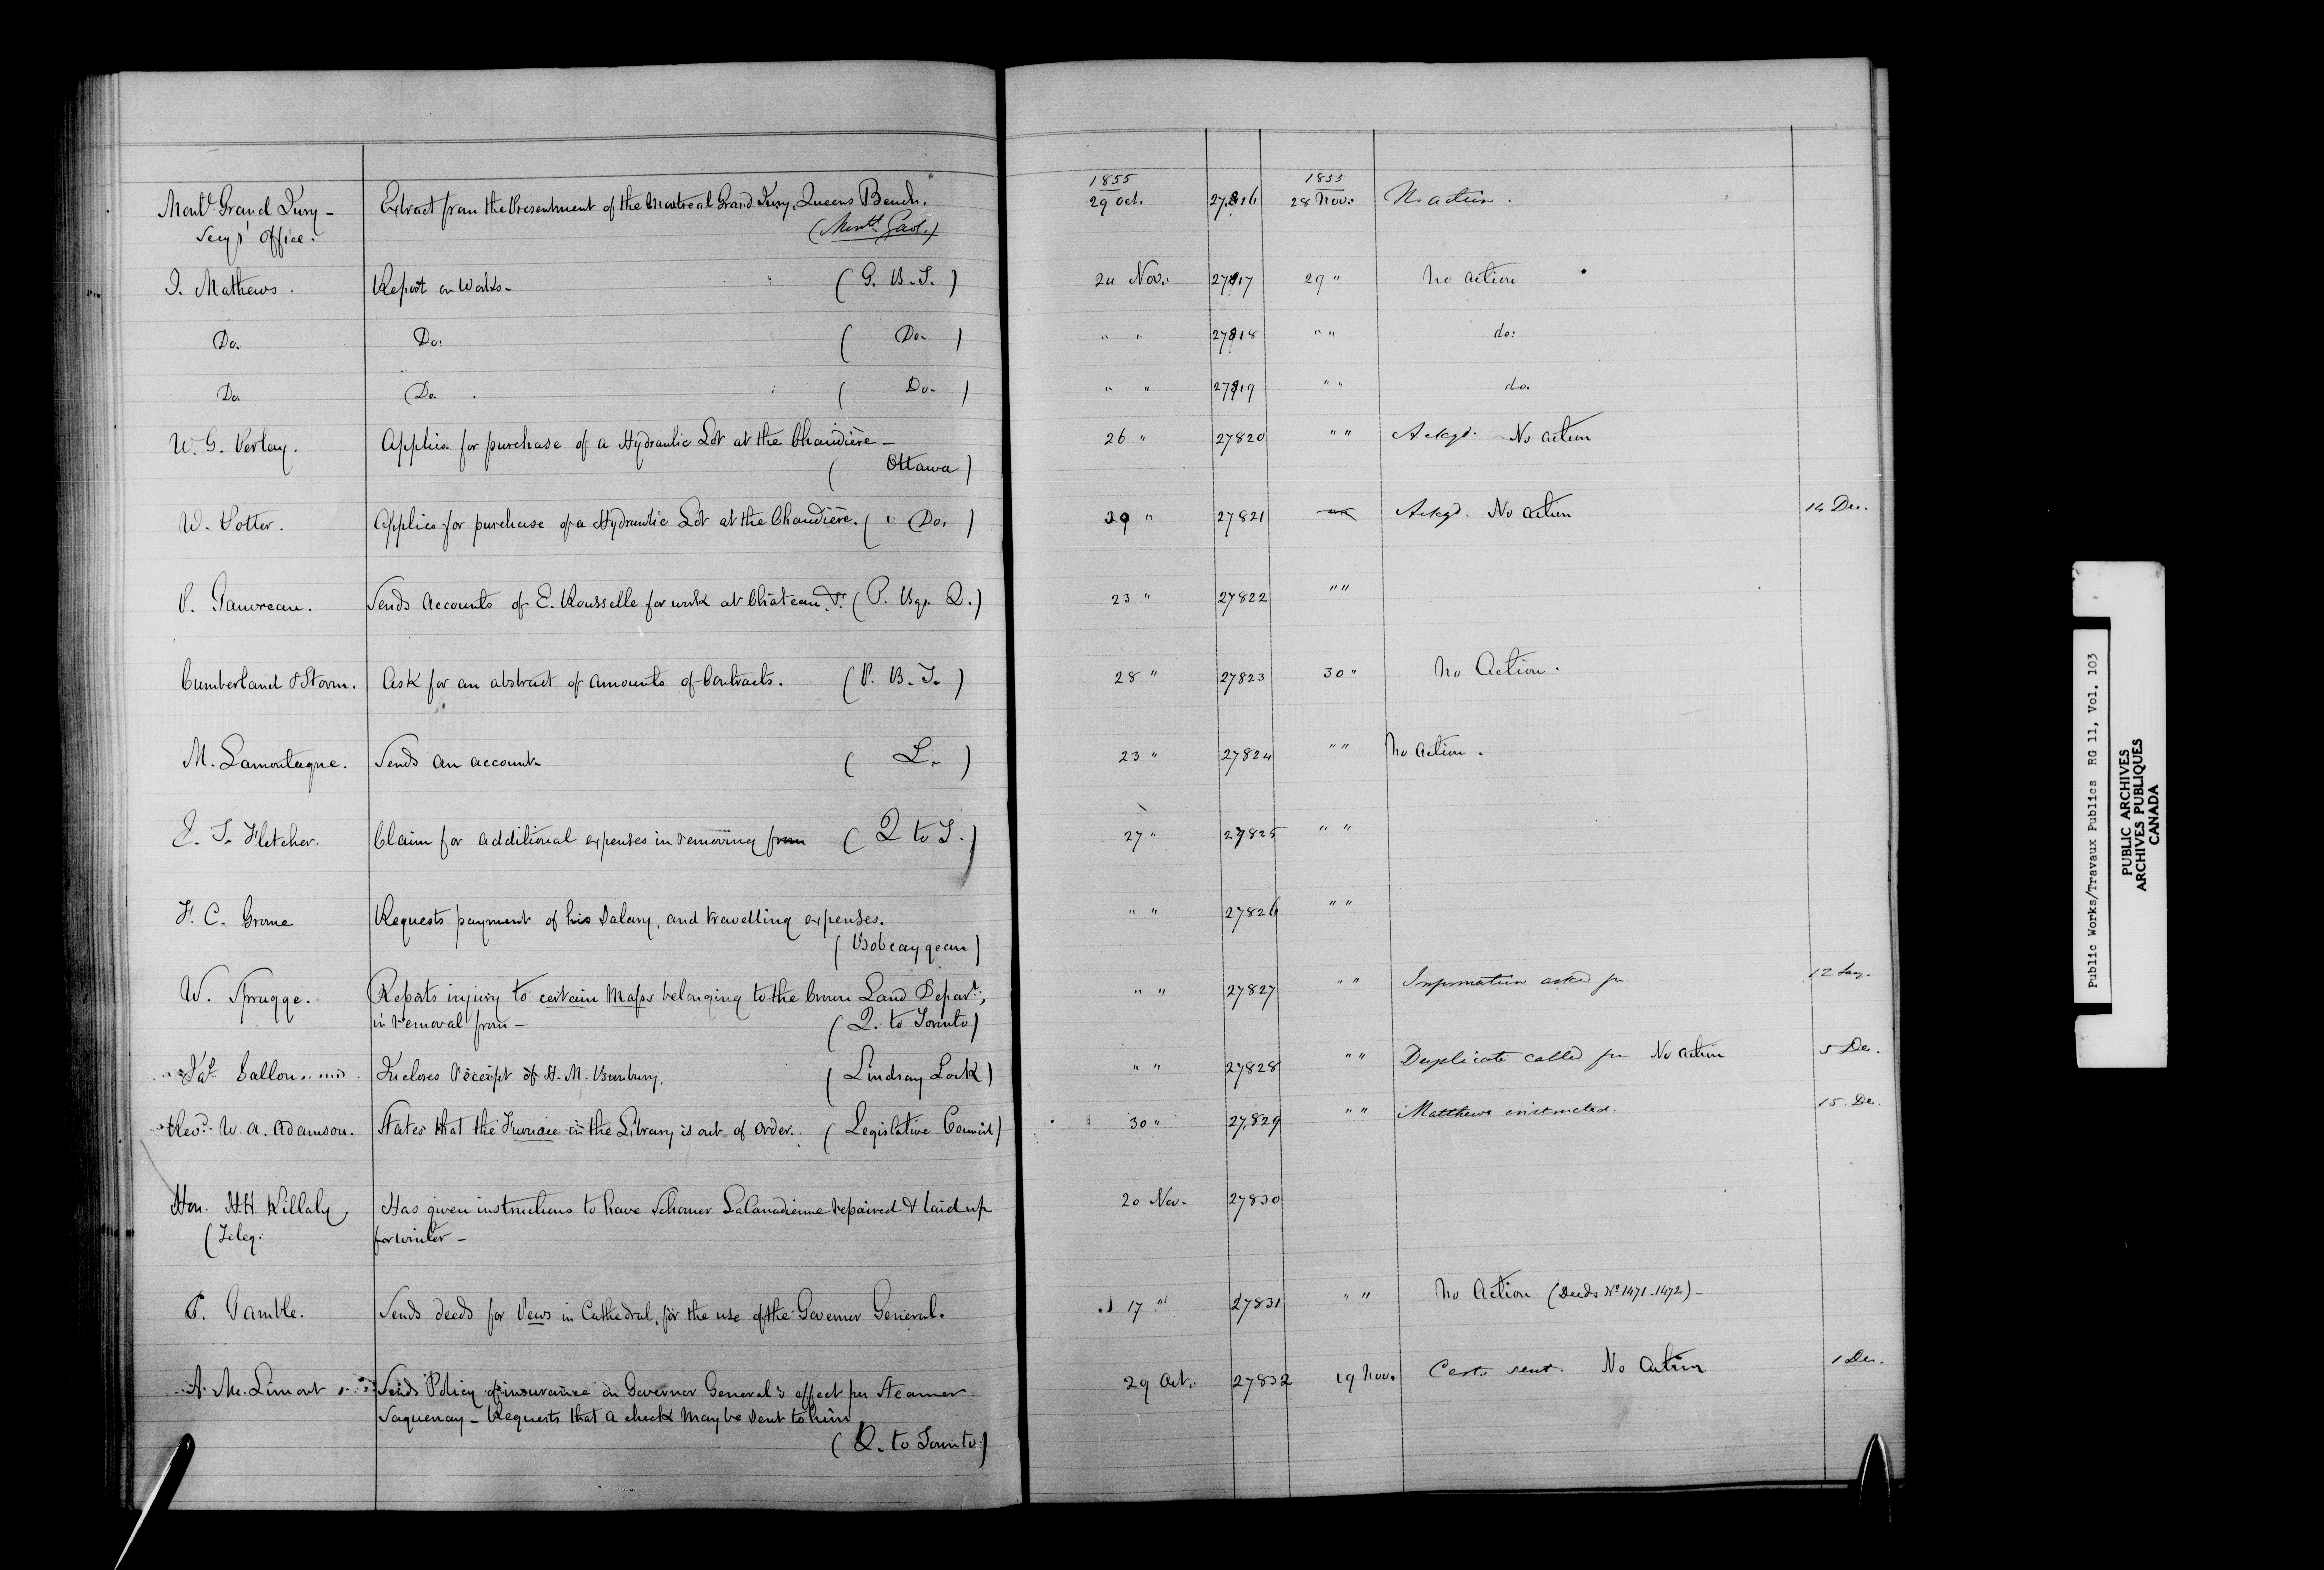 1855 1855
Montl Grand Jury - Extract from the Presentment of the Montreal Grand Jury, Queens Bench. 29 Oct. 27,816 28 Nov. No action.
Secy's Office. (Montl. Gaol.)
J. Mathews. Report on Works - (G. B. T.) 24 Nov. 27817 29 " No action
Do. Do: (Do.) " " 27818 " " do:
Do Do. (Do.) " " 27819 " " do.
W. G. Perley. Applies for purchase of a Hydraulic Lot at the Chaudière - 26 " 27820 " " Ackgd. No action
(Ottawa)
W. Potter. Applies for purchase of a Hydraulic Lot at the Chaudière. (Do.) 29 " 27821 Ackgd. No action 14 Dec.
P. Gauvreau. Sends Accounts of E. Rousselle for work at Château (P. Bgs. Q.) 23 " 27822 " "
Cumberland & Storm. Ask for an abstract of amounts of Contracts. (P. B. T.) 28 " 27823 30 " No Action.
M. Lamontagne. Sends an account. (L.) 23 " 27824 " " No action.
E. T. Fletcher. Claim for additional expenses in removing from (Q to T.) 27 " 27825 " "
F. C. Grome Requests payment of his Salary, and travelling expenses. " " 27826 " "
(Bobcaygean)
W. Spragge. Reports injury to certain Maps belonging to the Crown Land Depart:, " " 27827 " " Information asked for 12 Jany.
in removal from - (Q. to Toronto)
Pat. Gallon Incloses Receipt of H. M. Bunbury. (Lindsay Lock) " " 27828 " " Duplicate called for No action 5 Dec.
Revd. W. A. Adamson. States that the Furnace in the Library is out of order. (Legislative Council) 30 " 27,829 " " Matthews instructed. 15. Dec.
Hon. H. H. Killaly Has given instructions to have Schoner La Canadienne repaired & laid up 20 Nov. 27830
(Teleg: for winter -
C. Gamble. Sends deeds for Pews in Cathedral, for the use of the Governor General. 17 " 27831 " " No Action (Deeds No 1471-1472) -
A. Mc. Limont Sends Policy of insurance on Governor General's effect per Steamer 29 Oct. 27832 19 Nov. Certe sent. No Action 1 Dec.
Saguenay - Requests that a check may be sent to him
(Q. to Toronto)
Public Works/Travaux Publics RG 11, Vol. 103
PUBLIC ARCHIVES
ARCHIVES PUBLIQUES
CANADA